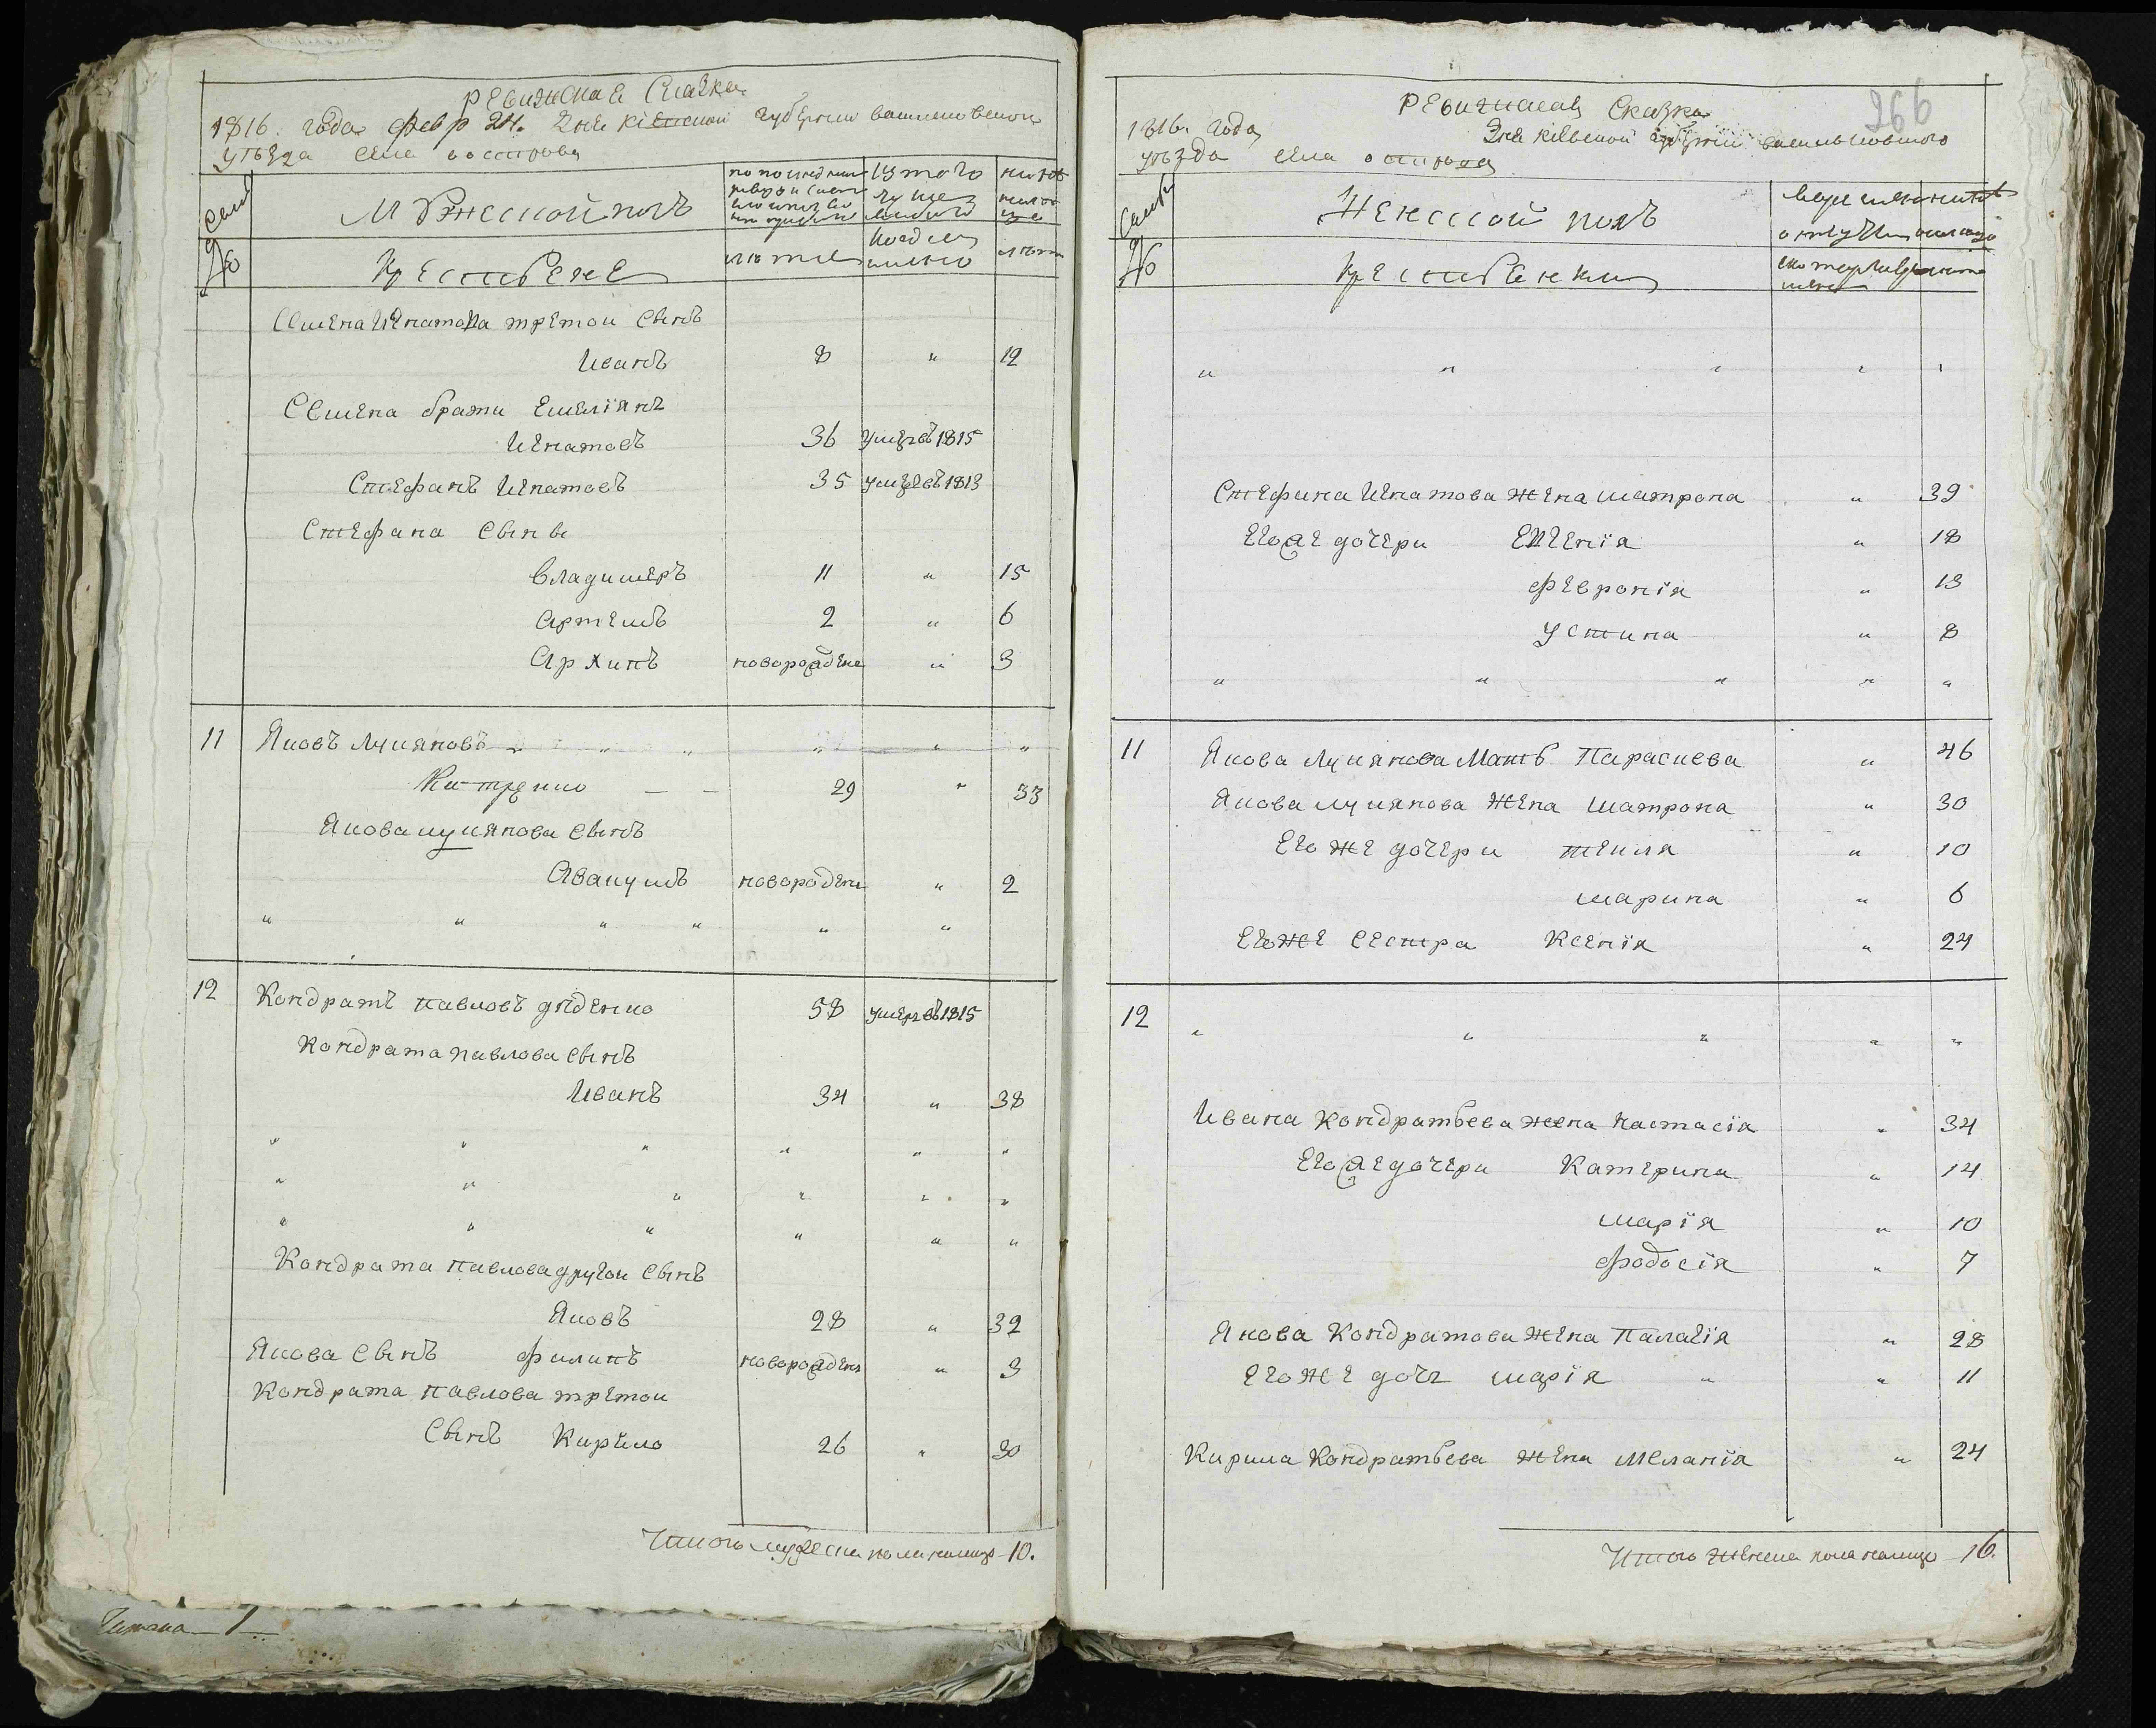 Ревизская Сказка
1816. года февр 24. дня кіевской губернии васильковского
уѣзда села острова
Семьи
№
Мужеской полъ
по последней ревизии состояло
Изъ того числа выбыло
ныне на лицо
Крестьяне
лѣта
когда именно
лѣта
Семена Игнатова третой сынъ
Иванъ 8 " 12
Семена братъ Емеліянъ
Игнатовъ 36 умеръ 1815
Стефанъ Игнатовъ 35 умеръ 1813
Стефана сыны
Владимеръ 11 " 15
Артемъ 2 " 6
Архипъ новорожден " 3
11 Яковъ Лукяновъ " " " " " "
29 " 33
Якова лукянова сынъ
Авакумъ новорожден " 2
" " " " " "
12 Кондратъ Павловъ дяденко 58 умеръ 1815
Кондрата Павлова сынъ
Иванъ 34 " 38
" " " " " "
" " " " " "
" " " " " "
Кондрата Павлова другой сынъ
Яковъ 28 " 32
Якова сынъ филипъ новорожден " 3
Кондрата Павлова третой
сынъ Кирило 26 " 30
Итого мужеска пола на лицо - 10.
266
Ревизская Сказка
1816. года дня кіевской губерніи васильковского
уѣзда села острова
Семьи
№
Женской полъ
временной отлучки
ныне на лицо
Крестьянки
" " " " "
Стефана Игнатова жена матрона " 39
Его же дочери Евгенія " 18
февронія " 13
устина " 8
" " " " "
11 Якова Лукянова Мать Параскева " 46
Якова лукянова жена матрона " 30
Его же дочери текля " 10
марина " 6
Его же сестра Ксенія " 24
12 " " " " "
Ивана Кондратьева жена настасія " 34
Его же дочери Катерина " 14
марія " 10
фодосія " 7
Якова Кондратова жена Палагія " 28
Его же дочь марія " " 11
Кирила Кондратьева жена Меланія " 24
Итого женска пола на лицо - 16.